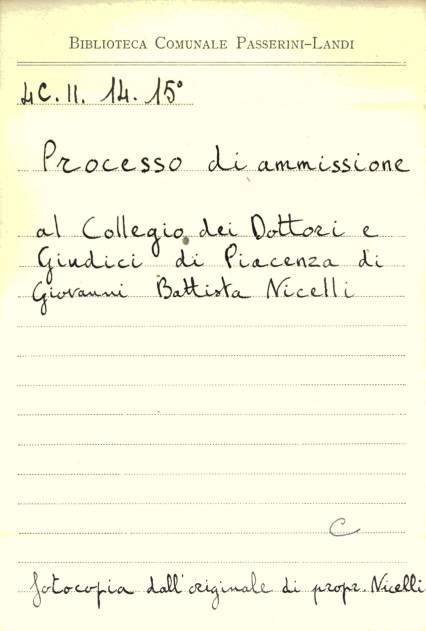 BIBLIOTECA COMUNALE PASSERINI-LANDI
4C.II. 14. 15°
Processo di ammissione
al Collegio dei Dottori e
Giudici di Piacenza di
Giovanni Battista Nicelli
C
fotocopia dall'originale di propr. Nicelli